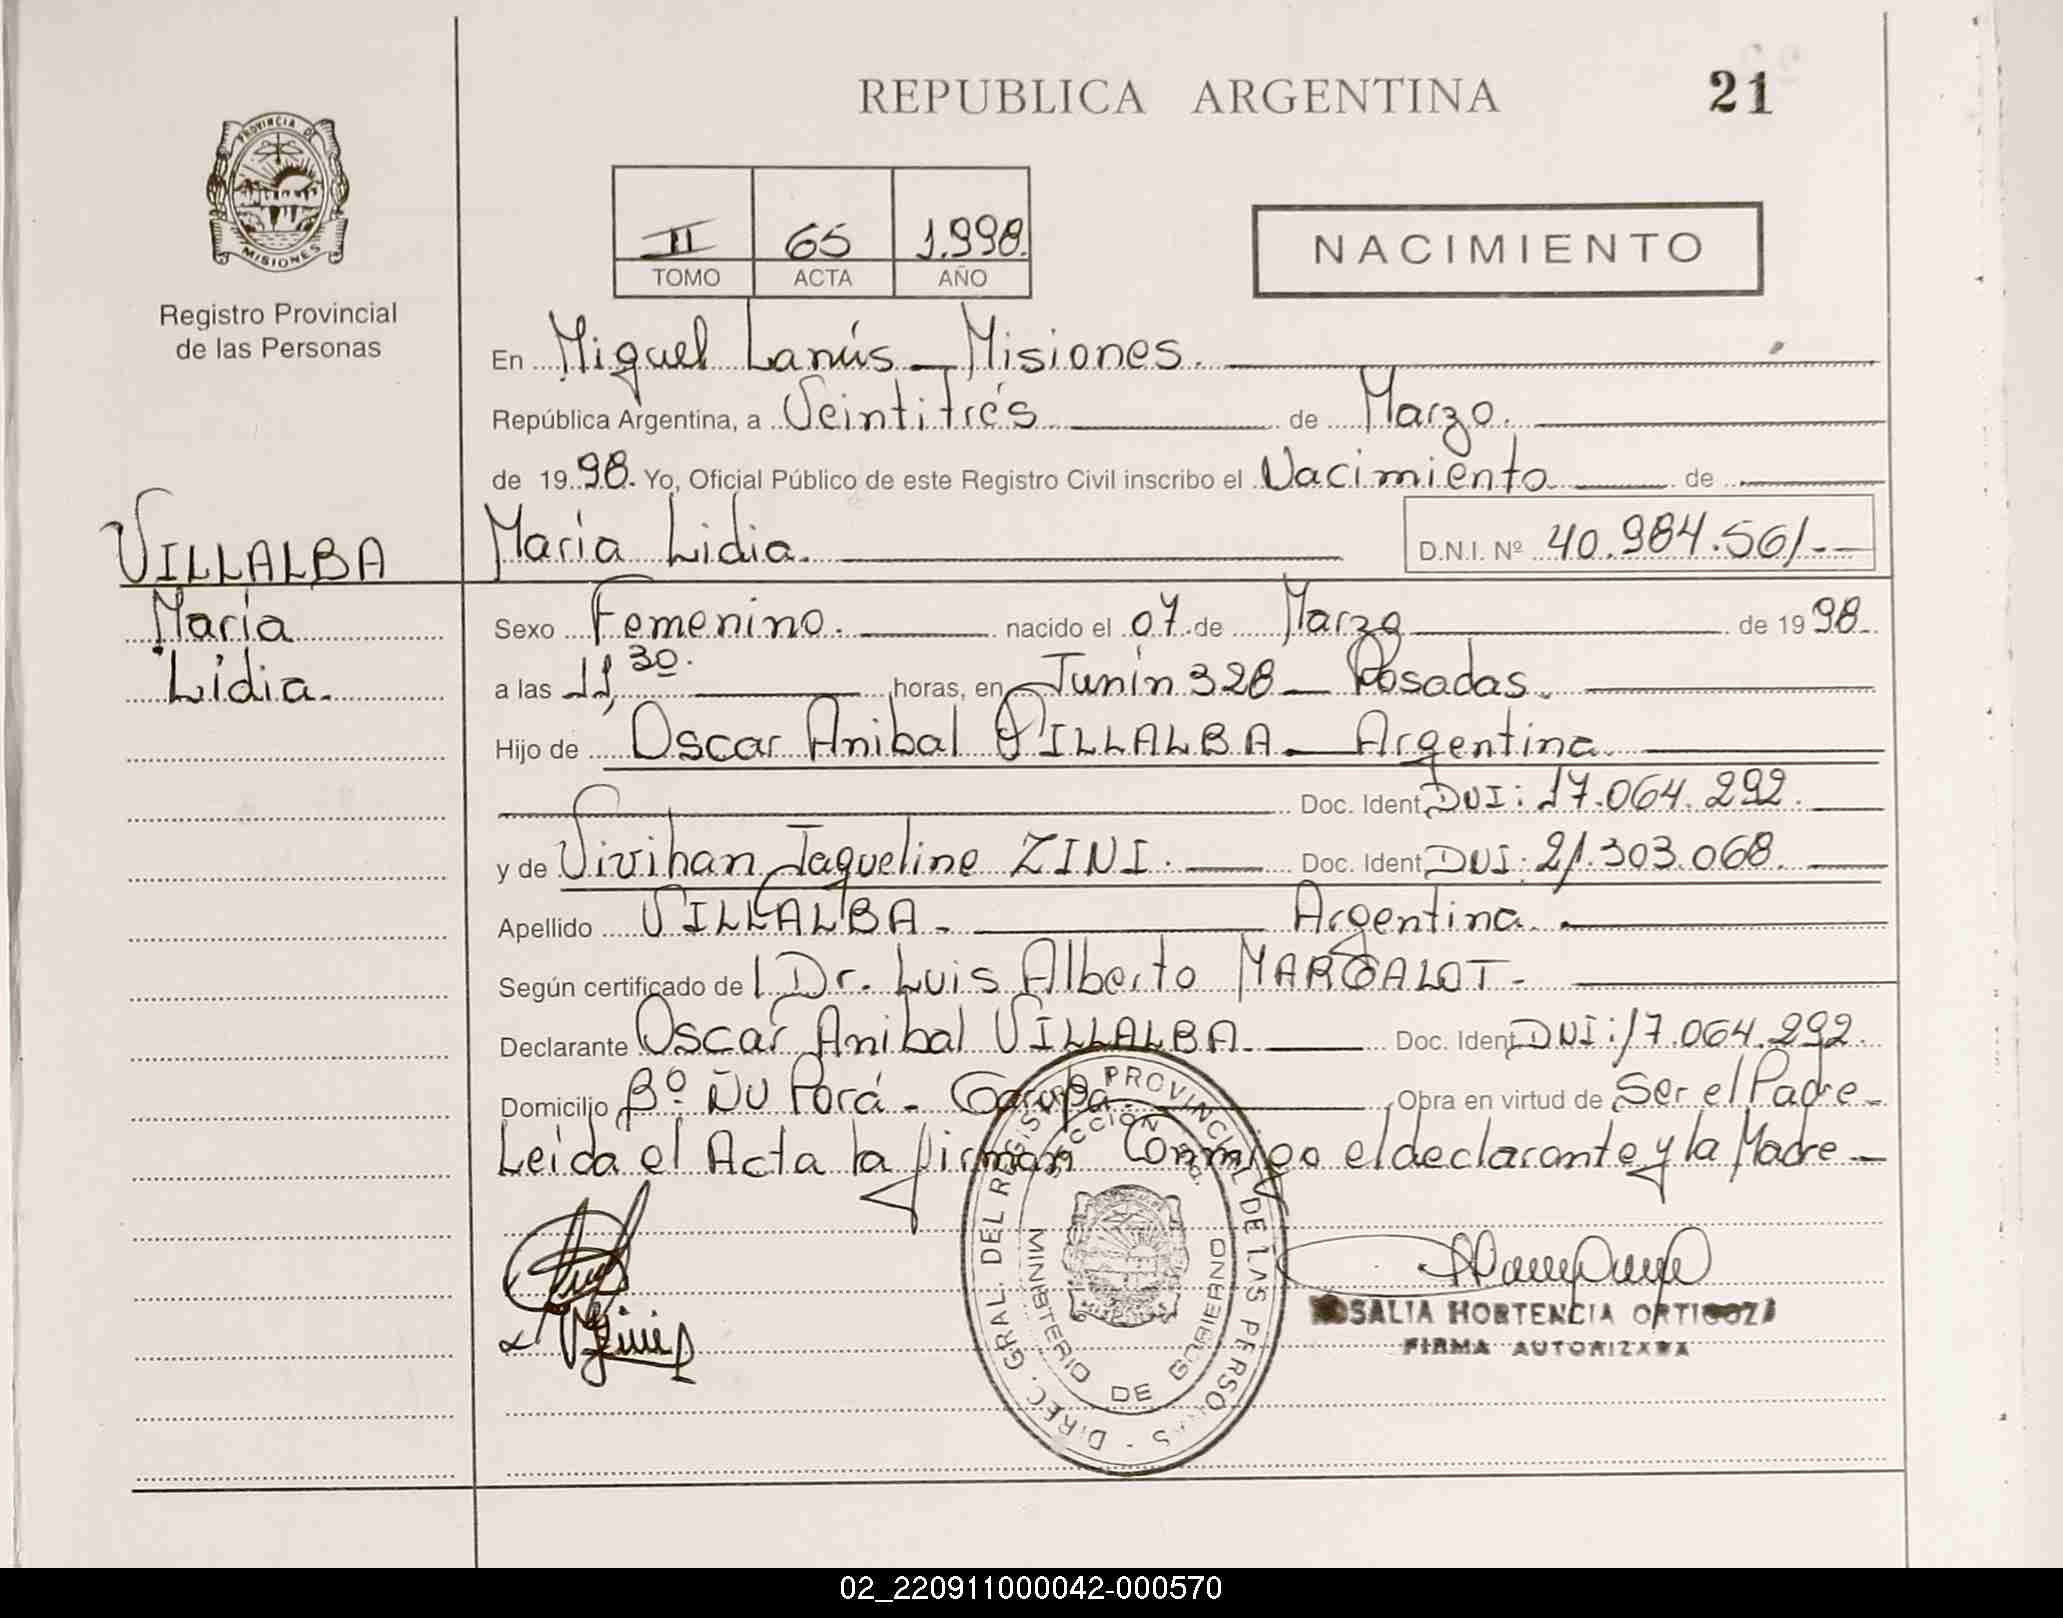 REPUBLICA ARGENTINA
21
PROVINCIA DE
MISIONES
Registro Provincial
de las Personas
II 65 1.998.
TOMO ACTA AÑO
NACIMIENTO
En Miguel Lanús - Misiones.
República Argentina, a Veintitrés de Marzo.
de 19 98. Yo, Oficial Público de este Registro Civil inscribo el Nacimiento de
VILLALBA
María
Lidia.
María Lidia. D.N.I. Nº 40.984.561.-
Sexo Femenino. nacido el 07 de Marzo de 19 98.
a las 11,30. horas, en Junín 328 - Posadas.
Hijo de Oscar Anibal VILLALBA - Argentina.
Doc. Ident DNI: 17.064.292.
y de Vivihan Jaqueline ZINI. Doc. Ident DNI: 21.303.068.
Apellido VILLALBA - Argentina.
Según certificado del Dr. Luis Alberto MARGALOT -
Declarante Oscar Anibal VILLALBA. Doc. Ident DNI: 17.064.292.
Domicilio Bº Ñu Porá - Garupa. Obra en virtud de Ser el Padre -
Leida el Acta la firman Conmigo el declarante y la Madre -
DIREC. GRAL. DEL REGISTRO PROVINCIAL DE LAS PERSONAS -
SECCION
MINISTERIO DE GOBIERNO
ROSALIA HORTENCIA ORTIGOZA
FIRMA AUTORIZADA
02_220911000042-000570